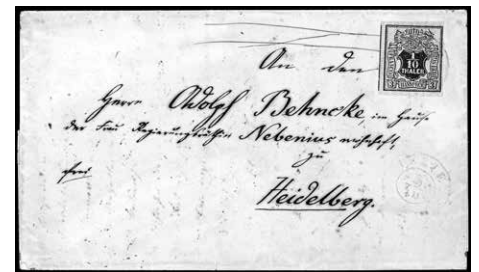 An den
1/10
THALER
Herrn Adolph Behncke, im Hause
der Frau Regierungsräthin Nebenius wohnhaft,
zu
frei
Heidelberg.